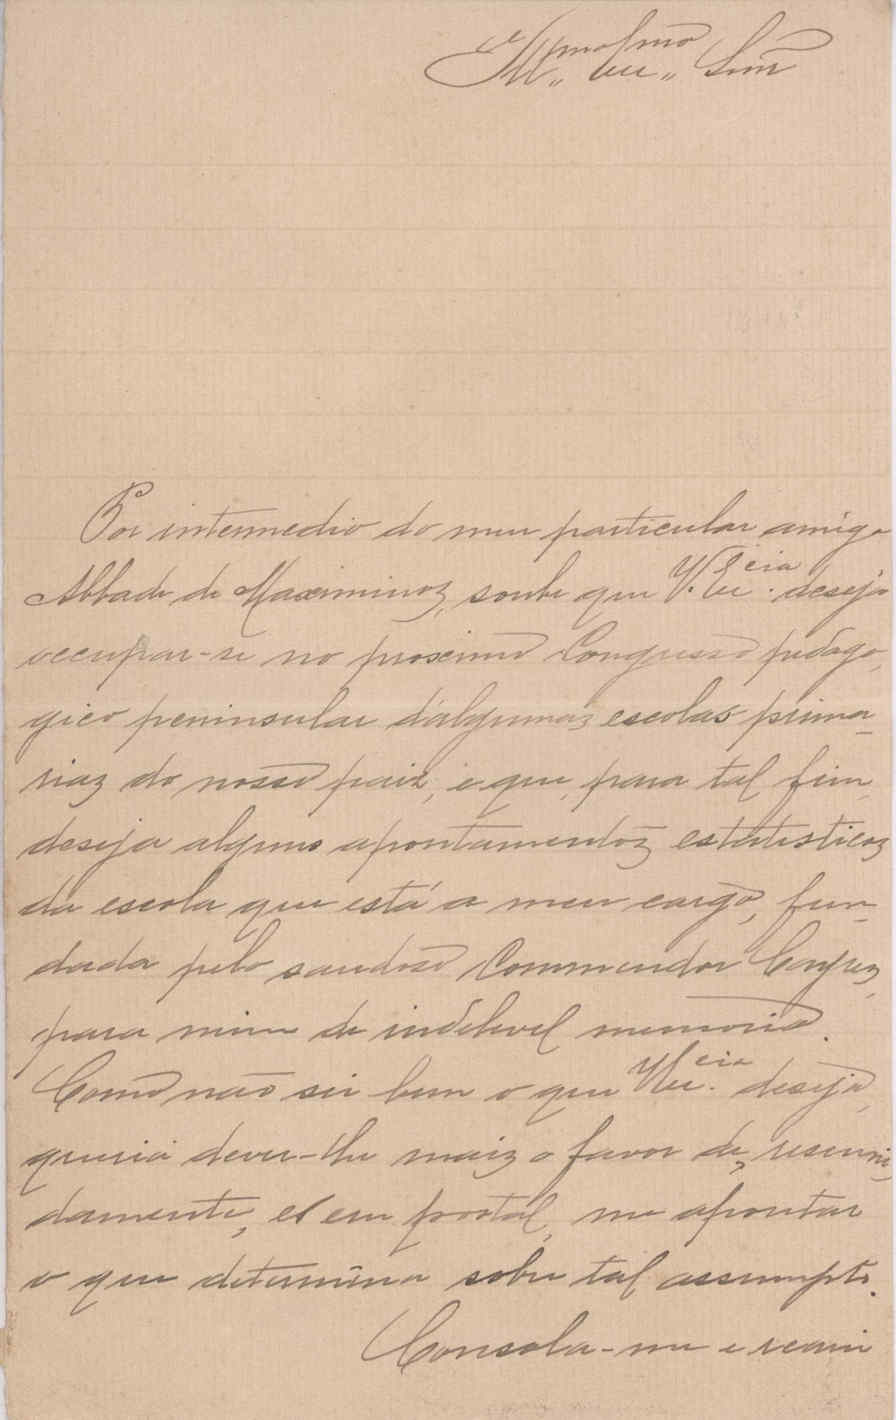 Ill.mo Ex.mo Snr.
Por intermedio do meu particular amigo
Abbade de Maximinos, soube que V. Ex.cia deseja
occupar-se no proximo Congresso pedago-
gico peninsular d'algumas escolas prima-
rias do nosso paiz, e que, para tal fim,
deseja alguns apontamentos estatisticos
da escola que está a meu cargo, fun-
dada pelo saudoso Commendador
para mim de indelevel memoria.
Como não sei bem o que V. Ex.cia deseja,
queria dever-lhe mais o favor de, resumi-
damente, e em postal, me apontar
o que determina sobre tal assumpto.
Consola-me e